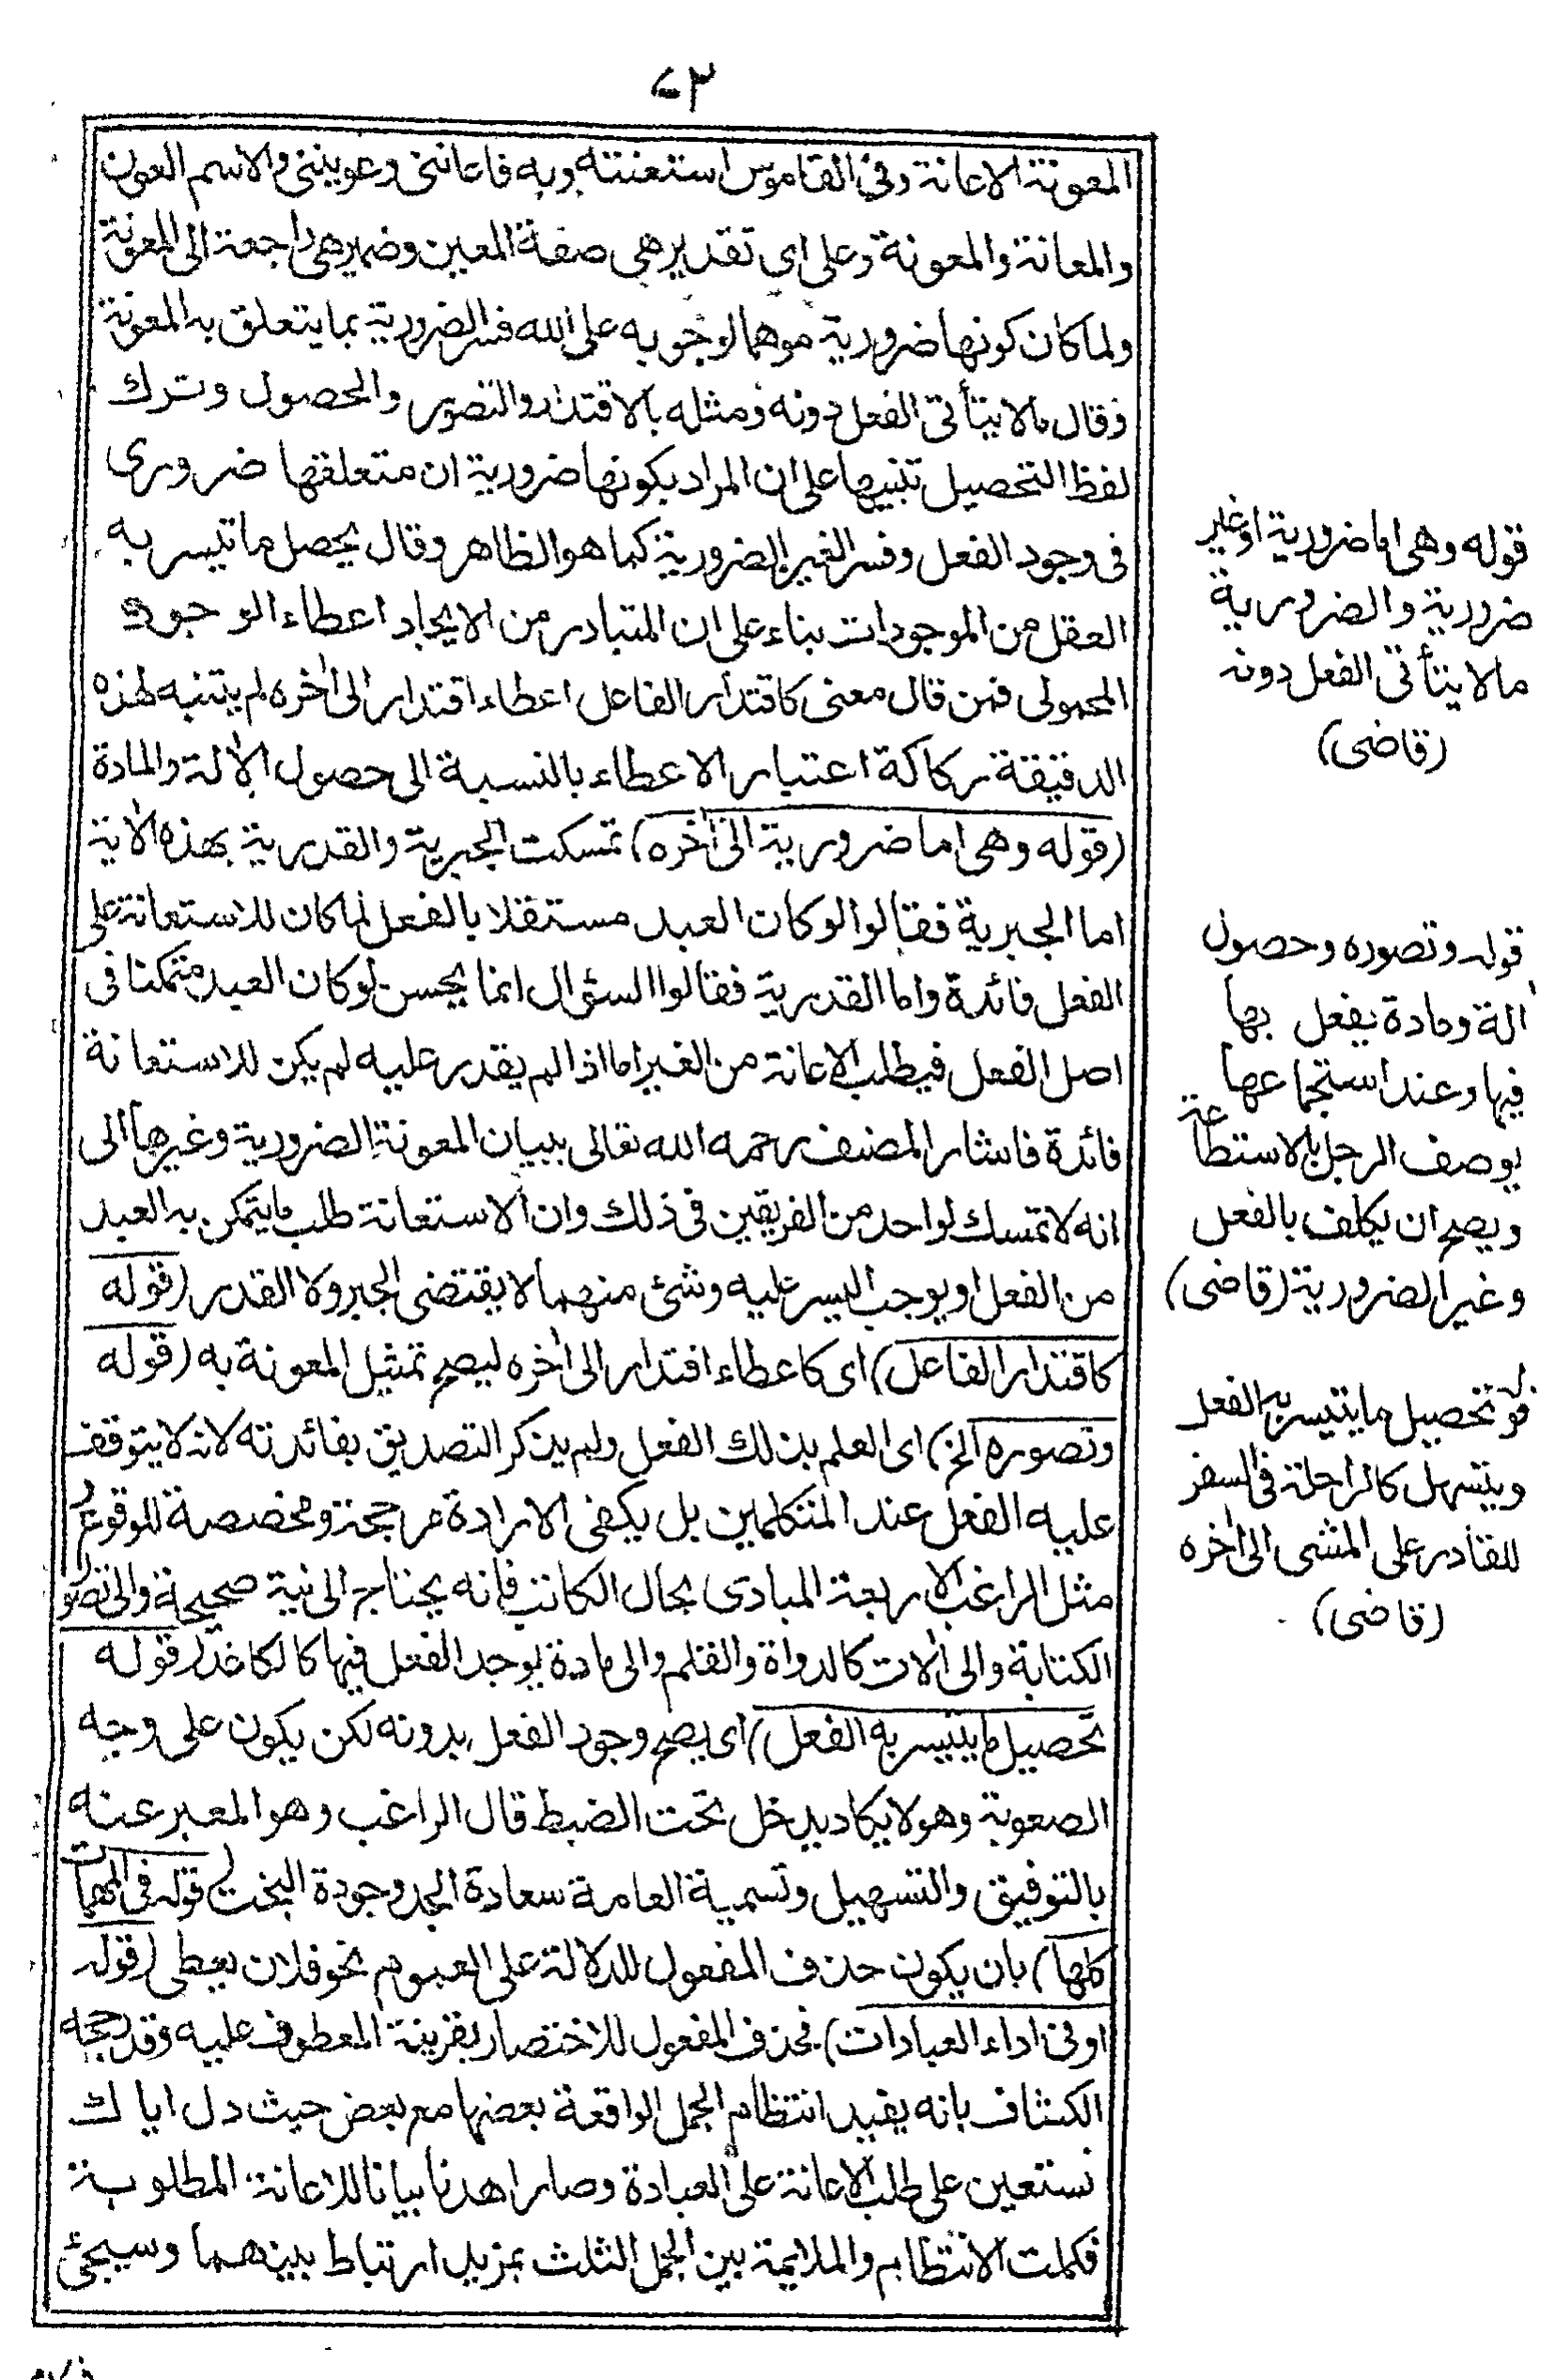 ٧٣
المعونة الاعانة وفى القاموس استعنته وبه فاعاننى وعوننى والاسم العون
والمعانة والمعونة وعلى اى تقدير هى صفة المعين وضمير هى راجعة الى المعونة
ولما كان كونها ضرورية موهما لوجوبه على الله فسر الضرورية بما يتعلق به المعونة
وقال مالا يتأتى الفعل دونه ومثله بالاقتدار والتصور والحصول وترك
لفظ التحصيل تنبيها على ان المراد بكونها ضرورية ان متعلقها ضرورى
فى وجود الفعل وفسر الغير الضرورية كما هو الظاهر وقال يحصل ما تيسر به
العقل من الموجودات بناء على ان المتبادر من الايجاد اعطاء الوجود
المحمولى فمن قال معنى كاقتدار الفاعل اعطاء اقتدار الى اخره لم يتنبه لهذه
الدقيقة ركاكة اعتبار الاعطاء بالنسبة الى حصول الآلة والمادة
(قوله وهى اما ضرورية الى اخره) تمسكت الجبرية والقدرية بهذه الآية
اما الجبرية فقالوا لو كان العبد مستقلا بالفعل لما كان للاستعانة على
الفعل فائدة واما القدرية فقالوا السؤال انما يحسن لو كان العبد متمكنا فى
اصل الفعل فيطلب الاعانة من الغير اما اذا لم يقدر عليه لم يكن للاستعانة
فائدة فاشار المصنف رحمه الله تعالى ببيان المعونة الضرورية وغيرها الى
انه لا تمسك لواحد من الفريقين فى ذلك وان الاستعانة طلب ما يتمكن به العبد
من الفعل او يوجب اليسر عليه وشئ منهما لا يقتضى الجبر ولا القدر (قوله
كاقتدار الفاعل) اى كاعطاء اقتدار الى اخره ليصح تمثيل المعونة به (قوله
وتصوره الخ) اى العلم بذلك الفعل ولم يذكر التصديق بفائدته لانه لا يتوقف
عليه الفعل عند المتكلمين بل يكفى الارادة مرجحة ومخصصة للوقوع
مثل الراغب الاربعة المبادى بحال الكاتب فانه يحتاج الى نية صحيحة والى تصور
الكتابة والى الات كالدواة والقلم والى مادة يوجد الفعل فيها كالكاغذ (قوله
تحصيل ما يتيسر به الفعل) اى يصح وجود الفعل بدونه لكن يكون على وجه
الصعوبة وهو لا يكاد يدخل تحت الضبط قال الراغب وهو المعبر عنه
بالتوفيق والتسهيل وتسمية العامة سعادة الجد وجودة البخت (قوله فى المهمات
كلها) بان يكون حذف المفعول للدلالة على العموم نحو فلان يعطى (قوله
او فى اداء العبادات) فحذف المفعول للاختصار بقرينة المعطوف عليه وقد رجحه
الكشاف بانه يفيد انتظام الجمل الواقعة بعضها مع بعض حيث دل اياك
نستعين على طلب الاعانة على العبادة وصار اهدنا بيانا للاعانة المطلوبة
فكملت الانتظام والملايمة بين الجمل الثلث بمزيد ارتباط بينهما وسيجئ
قوله وهى اما ضرورية او غير
ضرورية والضرورية
مالا يتأتى الفعل دونه
(قاضى)
قوله وتصوره وحصول
الة ومادة يفعل بها
فيها وعند استجماعها
يوصف الرجل بالاستطاعة
ويصح ان يكلف بالفعل
وغير الضرورية (قاضى)
قوله تحصيل ما يتيسر به الفعل
ويتسهل كالراحلة فى السفر
للقادر على المشى الى اخره
(قاضى)